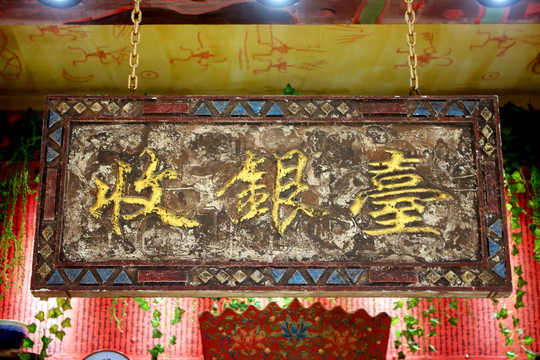 收銀臺